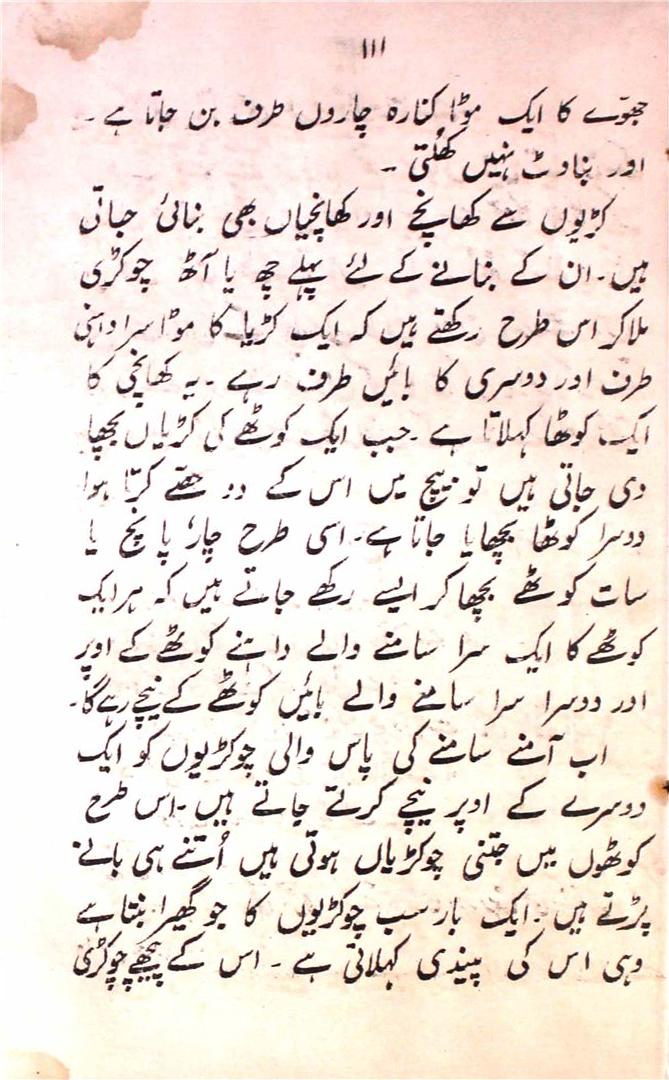 ۱۱۱
جھوّے کا ایک موٹا کنارہ چاروں طرف بن جاتا ہے ۔
اور بناوٹ نہیں کھُلتی ۔
کڑیوں سے کھانچے اور کھانچیاں بھی بنائی جاتی
ہیں۔ ان کے بنانے کے لئے پہلے چھ یا آٹھ چوکڑی
ملاکر اس طرح رکھتے ہیں کہ ایک کڑیا کا موٹا سرا داہنی
طرف اور دوسری کا بائیں طرف رہے ۔ یہ کھانچی کا
ایک کوٹھا کہلاتا ہے ۔ جب ایک کوٹھے کی کڑیاں بچھا
دی جاتی ہیں تو بیچ میں اس کے دو حصّے کرتا ہوا
دوسرا کوٹھا بچھایا جاتا ہے۔ اسی طرح چار، پانچ یا
سات کوٹھے بچھا کر ایسے رکھے جاتے ہیں کہ ہر ایک
کوٹھے کا ایک سرا سامنے والے داہنے کوٹھے کے اوپر
اور دوسرا سرا سامنے والے بائیں کوٹھے کے نیچے رہے گا۔
اب آمنے سامنے کی پاس والی چوکڑیوں کو ایک
دوسرے کے اوپر نیچے کرتے جاتے ہیں ۔ اس طرح
کوٹھوں میں جتنی چوکڑیاں ہوتی ہیں اُتنے ہی بانے
پڑتے ہیں ۔ ایک بار سب چوکڑیوں کا جو گھیرا بنتا ہے
وہی اس کی پیندی کہلاتی ہے ۔ اس کے پیچھے چوکڑی